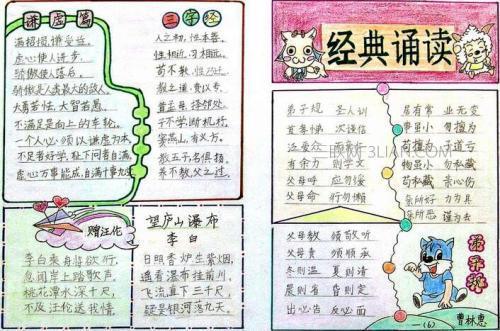 谦虚篇
满招损,谦受益。
虚心使人进步,
骄傲使人落后,
骄傲是人类最大的敌人。
大勇若怯,大智若愚。
不满足是向上的车轮。
一个人必须以谦虚为本。
不足者好学,耻下问者自满。
虚心万事能成,自满十事九空。
三字经
人之初,性本善。
性相近,习相远。
苟不教,性乃迁。
教之道,贵以专。
昔孟母,择邻处。
子不学,断机杼。
窦燕山,有义方。
教五子,名俱扬。
养不教,父之过。
赠汪伦
李白乘舟将欲行,
忽闻岸上踏歌声。
桃花潭水深千尺,
不及汪伦送我情。
望庐山瀑布
李白
日照香炉生紫烟,
遥看瀑布挂前川,
飞流直下三千尺,
疑是银河落九天。
经典诵读
弟子规 圣人训
首孝悌 次谨信
泛爱众 而亲仁
有余力 则学文
父母呼 应勿缓
父母命 行勿懒
父母教 须敬听
父母责 须顺承
冬则温 夏则凊
晨则省 昏则定
出必告 反必面
居有常 业无变
事虽小 勿擅为
苟擅为 子道亏
物虽小 勿私藏
苟私藏 亲心伤
亲所好 力为具
亲所恶 谨为去
弟子规
曹林惠